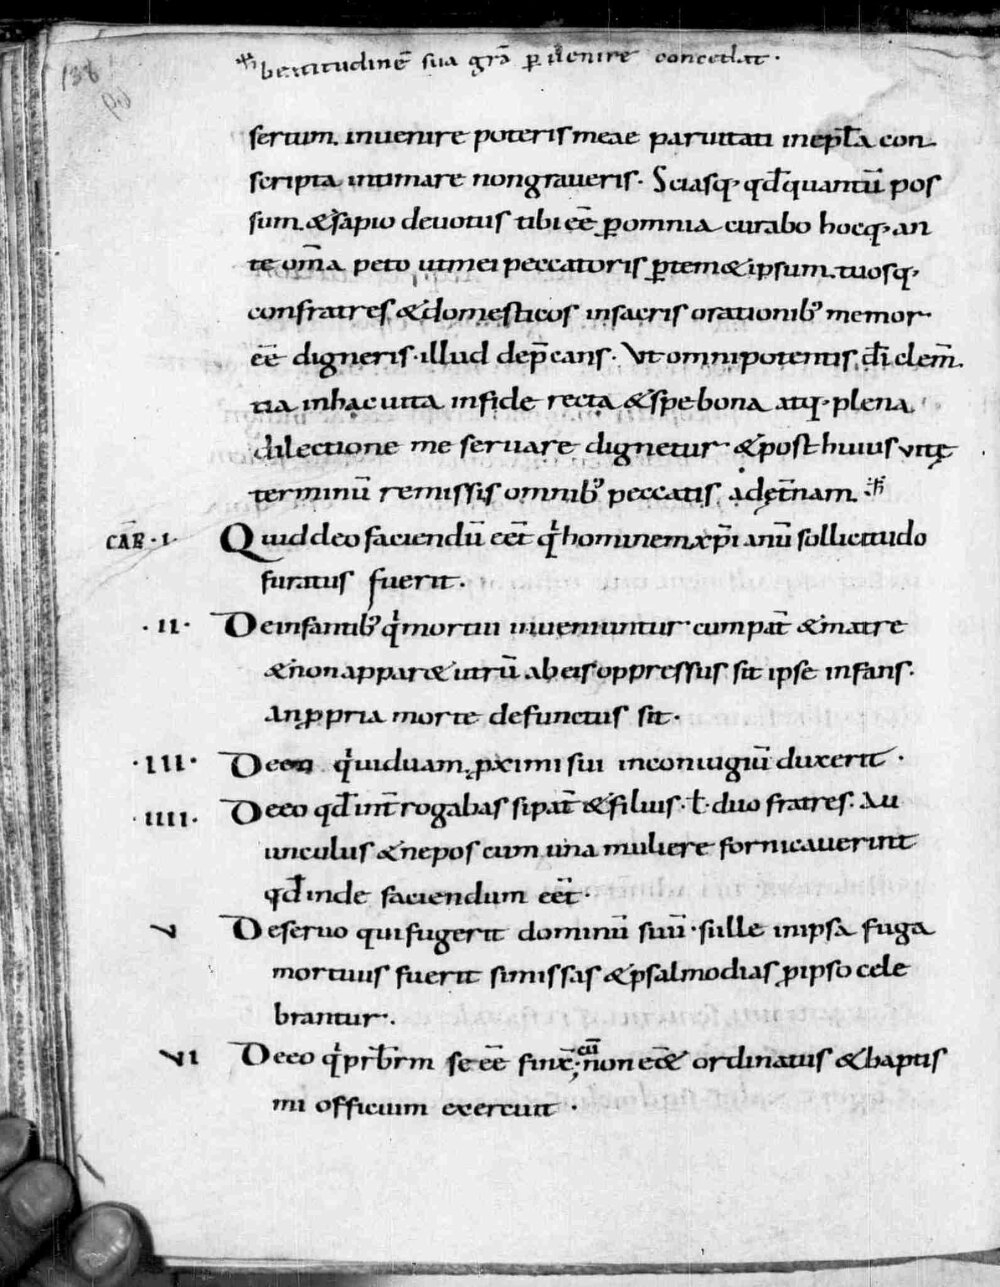 138
beatitudinē sua grā ꝑuenire concedat.
sertum. inuenire poteris meae paruitati inepl̄a con
scripta intimare nongraueris. Sciasq; qd̄quantū pos
sum. &sapio deuotus tibi eē ꝑomnia curabo hocq; an
te om̄a peto utmei peccatoris ꝑtem&ipsum. tuosq;
confratres &domesticos insacris orationib; memor
eē digneris. illud dep̄cans. Vt omnipotentis dī clem̄
tia inhac uita infide recta &spe bona atq; plena
dilectione me seruare dignetur. &post huius vitę
terminū remissis omnib; peccatis. adęt̄nam.
CAP̄ . I. Quid deo faciendū eēt qui hominem xp̄ianū sollicitudo
furatus fuerit.
. II . Deinfantib; qui mortui inueniuntur cum pat̄ &matre
&non appar& utrū ab eis oppressus sit ipse infans.
An ꝓpria morte defunctus sit.
. III . Deeo qui uiduam ꝓximi sui inconiugiū duxerit .
. IIII . Deeo qd̄ int̄rogabas sipat̄ &filius. ł. duo fratres. Au
unculus &nepos cum una muliere fornicauerint
qd̄ inde faciendum eēt.
V Deseruo qui fugerit dominū suū. sille inipsa fuga
mortuus fuerit simissas &psalmodias ꝓ ipso cele
brantur.
VI Deeo qui pr̄br̄m se eē finx̄; cū non eēt ordinatus &baptis
mi officium exercuit .